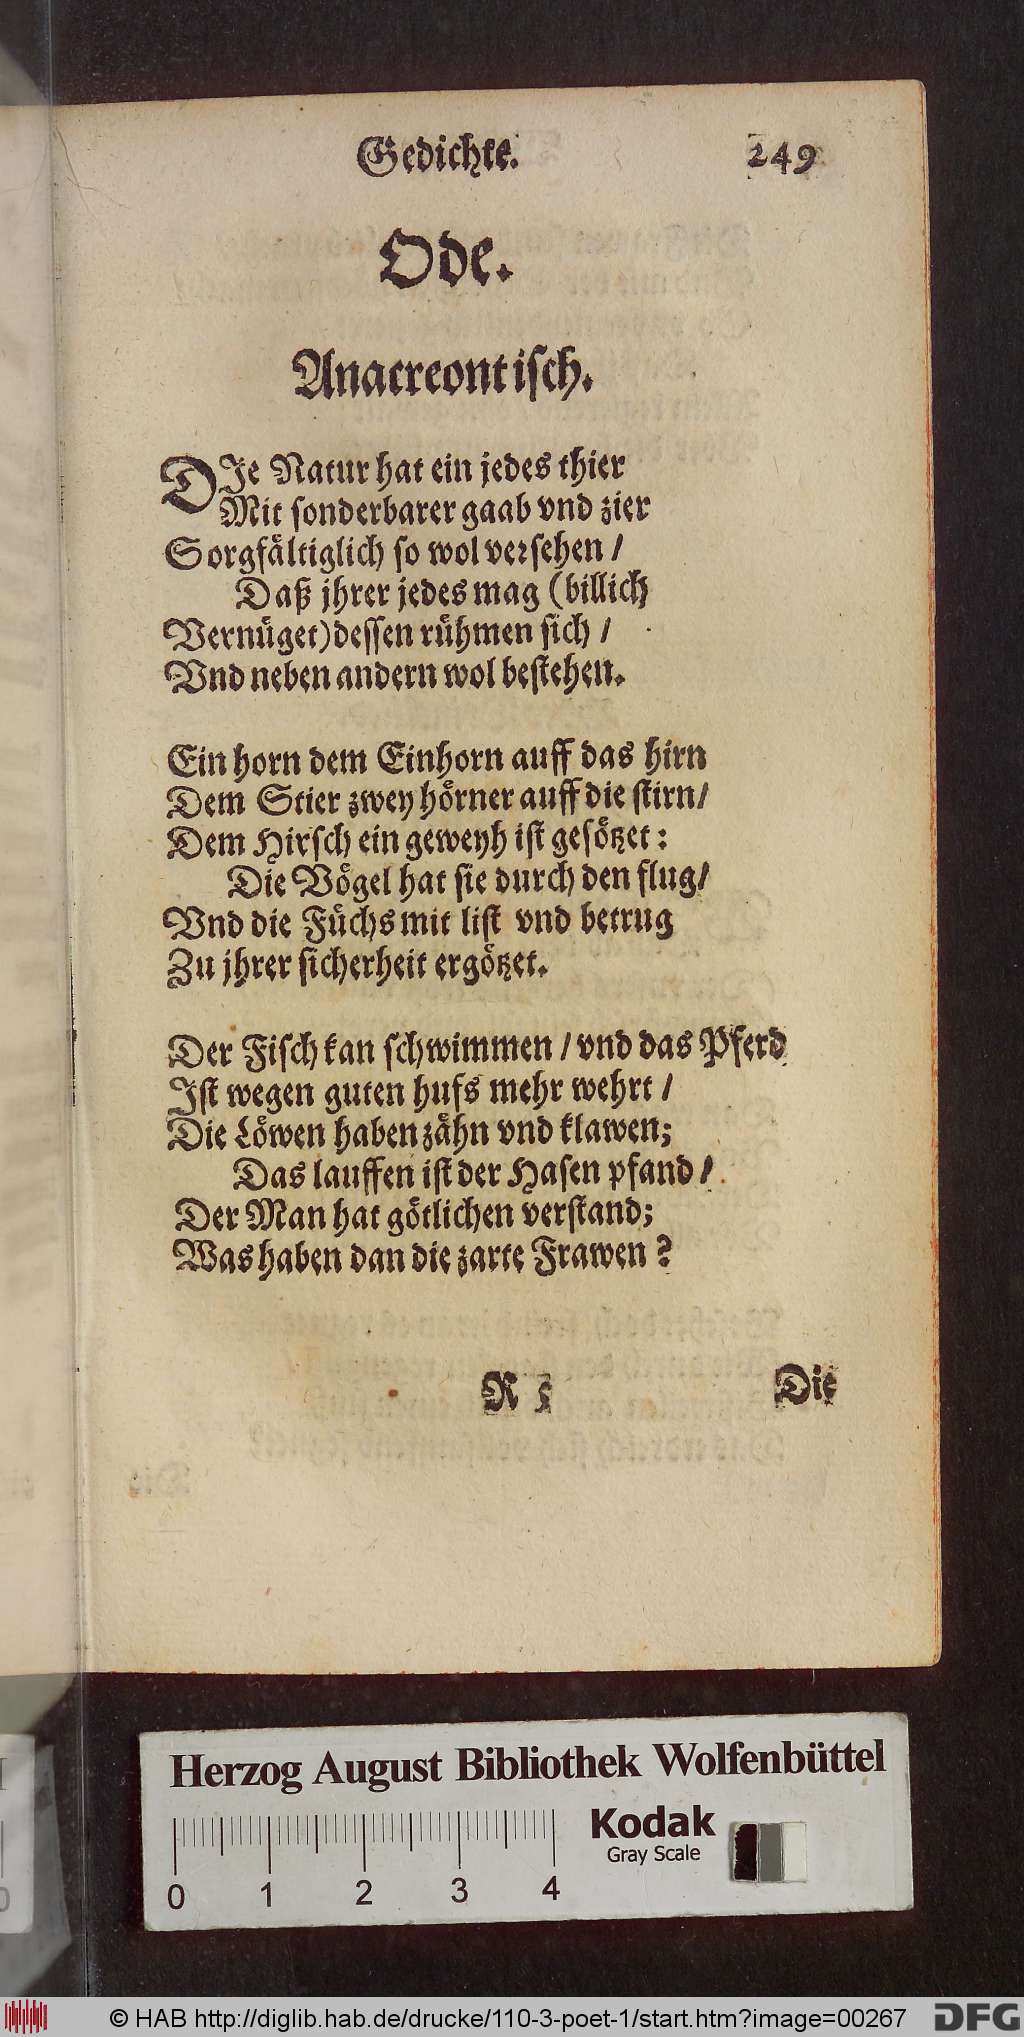 Gedichte. 249
Ode.
Anacreontisch.
DJe Natur hat ein jedes thier
Mit sonderbarer gaab vnd zier
Sorgfältiglich so wol versehen /
Daß jhrer jedes mag (billich
Vernüget) dessen rühmen sich /
Vnd neben andern wol bestehen.
Ein horn dem Einhorn auff das hirn
Dem Stier zwey hörner auff die stirn/
Dem Hirsch ein geweyh ist gesötzet:
Die Vögel hat sie durch den flug/
Vnd die Füchs mit list vnd betrug
Zu jhrer sicherheit ergötzet.
Der Fisch kan schwimmen / vnd das Pferd
Jst wegen guten hufs mehr wehrt /
Die Löwen haben zähn vnd klawen;
Das lauffen ist der Hasen pfand /
Der Man hat götlichen verstand;
Was haben dan die zarte Frawen?
R Die
Herzog August Bibliothek Wolfenbüttel
Kodak
Gray Scale
0 1 2 3 4
© HAB http://diglib.hab.de/drucke/110-3-poet-1/start.htm?image=00267 DFG